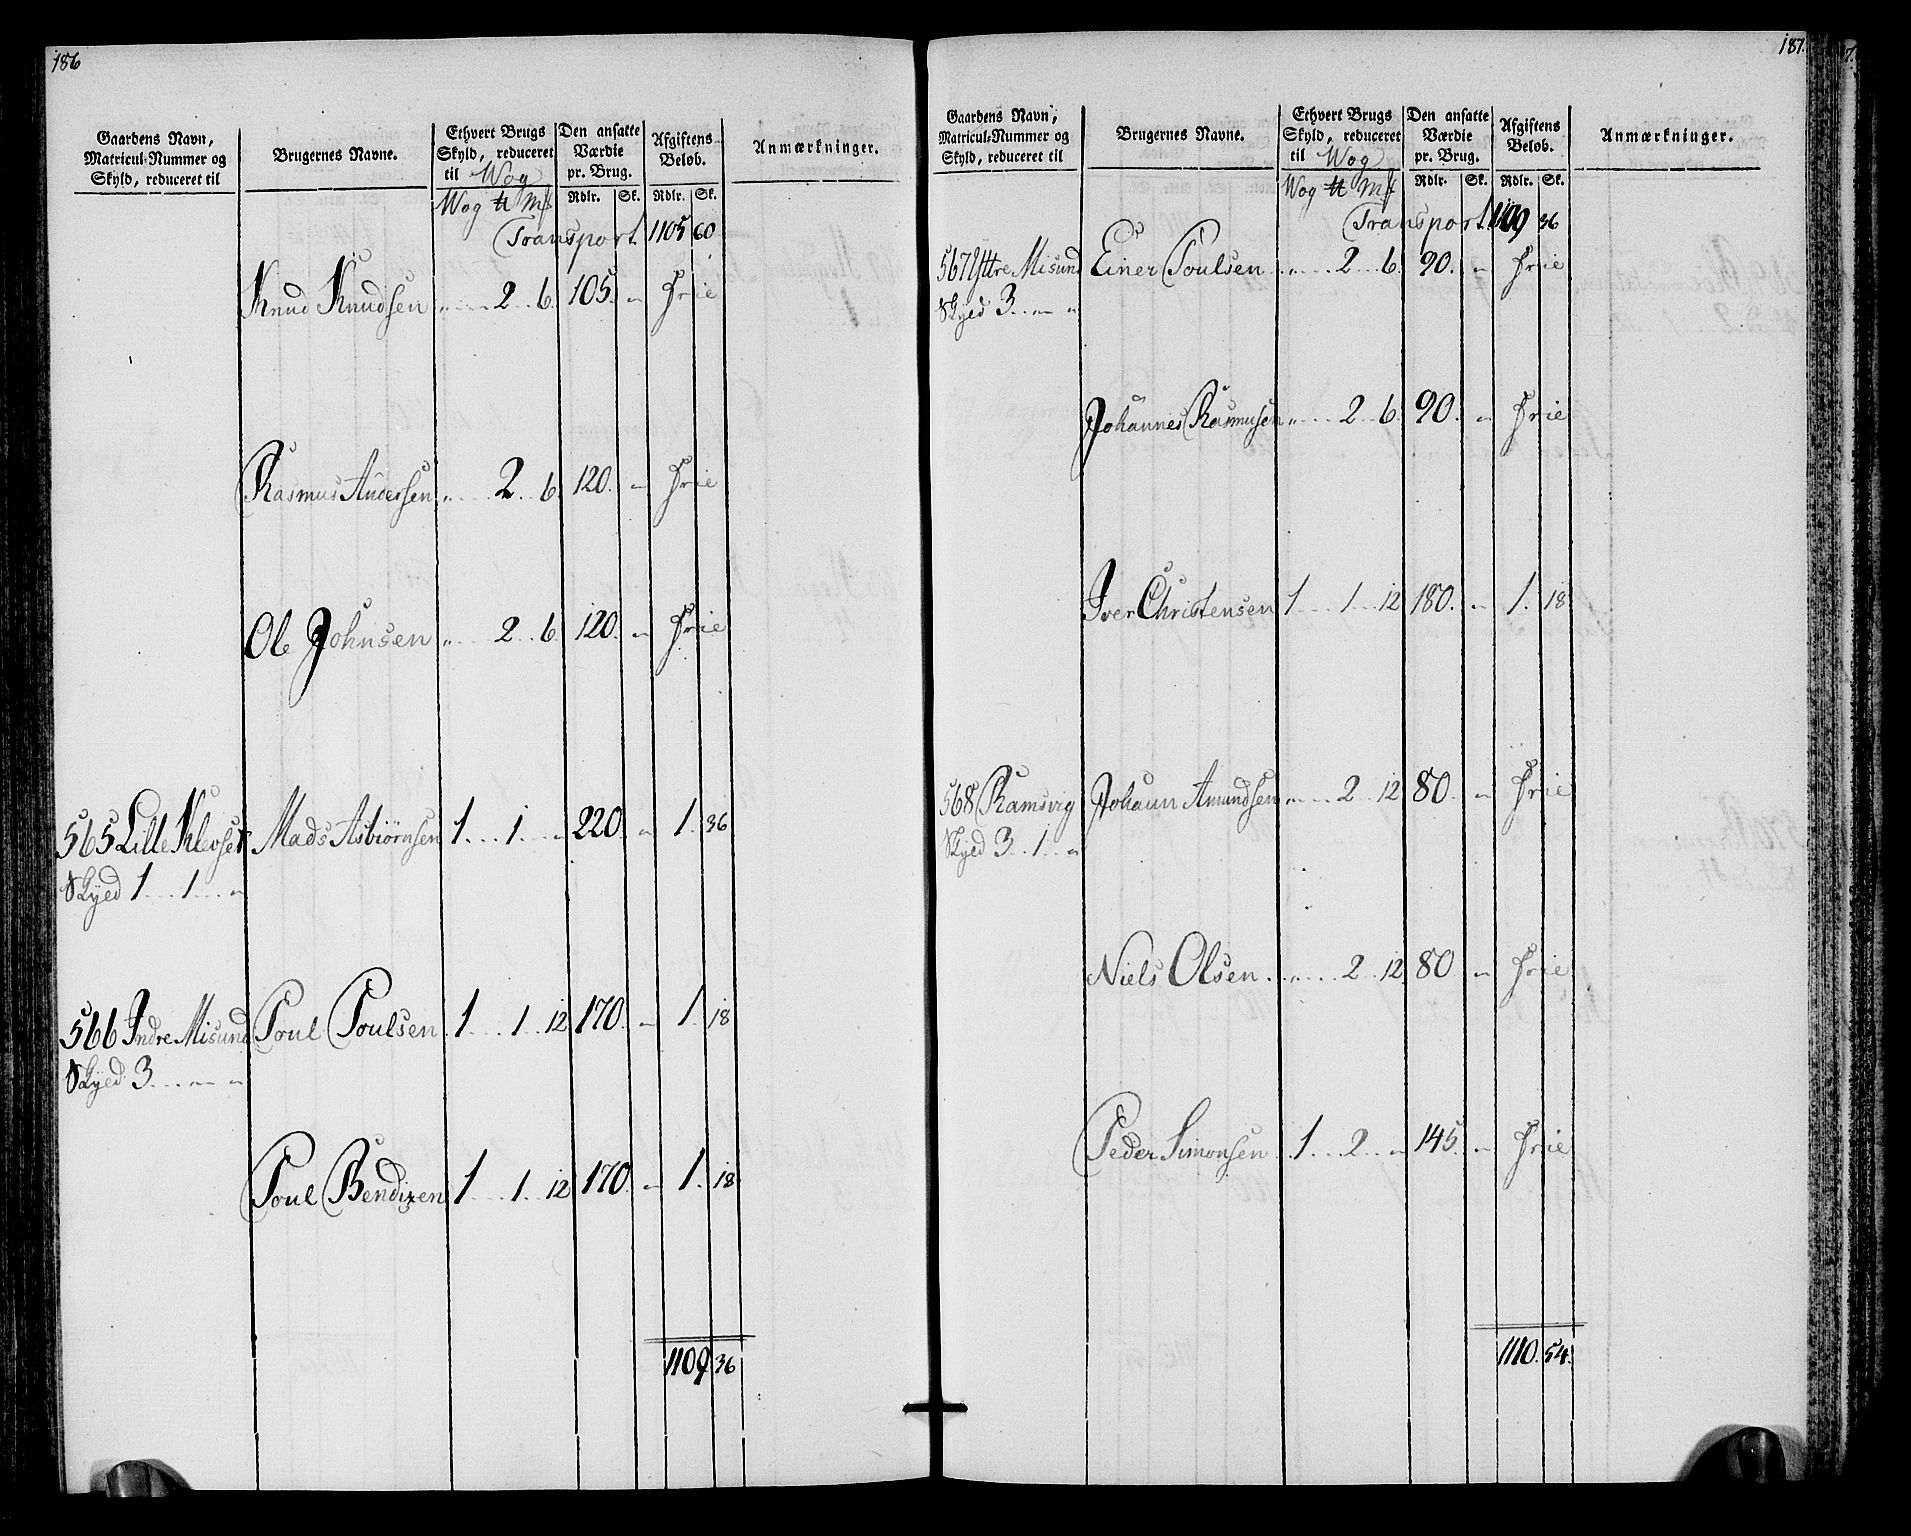 186
Gaardens Navn, Matricul-Nummer og Skyld, reduceret til | Brugernes Navne. | Ethvert Brugs Skyld, reduceret til Wog | Den ansatte Værdie pr. Brug. | Afgiftens Beløb. | Anmærkninger.
Wog ℔ Mk | Rdlr. | Sk. | Rdlr. | Sk.
Transport. 1105 60
Knud Knudsen „ 2 6. 105. „ Frie
Rasmus Andersen „ 2. 6. 120. „ Frie
Ole Johnsen „ 2. 6. 120. „ Frie
565 Lille Klevset Mads Asbiørnsen 1 1 „ 220. „ 1. 36
Skyed 1 1 „
566 Indre Misund Poul Poulsen 1 1 12 170. „ 1. 18
Skyed 3 „ „
Poul Bendixen 1 1 12 170. „ 1. 18
1109 36
187.
Gaardens Navn, Matricul-Nummer og Skyld, reduceret til | Brugernes Navne. | Ethvert Brugs Skyld, reduceret til Wog | Den ansatte Værdie pr. Brug. | Afgiftens Beløb. | Anmærkninger.
Wog ℔ Mk | Rdlr. | Sk. | Rdlr. | Sk.
Transport. 1109 36
567 Yttre Misund Einer Poulsen „ 2 6. 90. „ Frie
Skyed 3 „ „
Johannes Rasmusen „ 2 6. 90. „ Frie
Iver Christensen 1 1 12 180. „ 1. 18
568 Ramsvig Johann Amundsen „ 2 12 80. „ Frie
Skyed 3 1 „
Niels Olsen „ 2 12. 80 „ Frie
Peder Simonsen 1 2 „ 145. „ Frie
1110. 54.